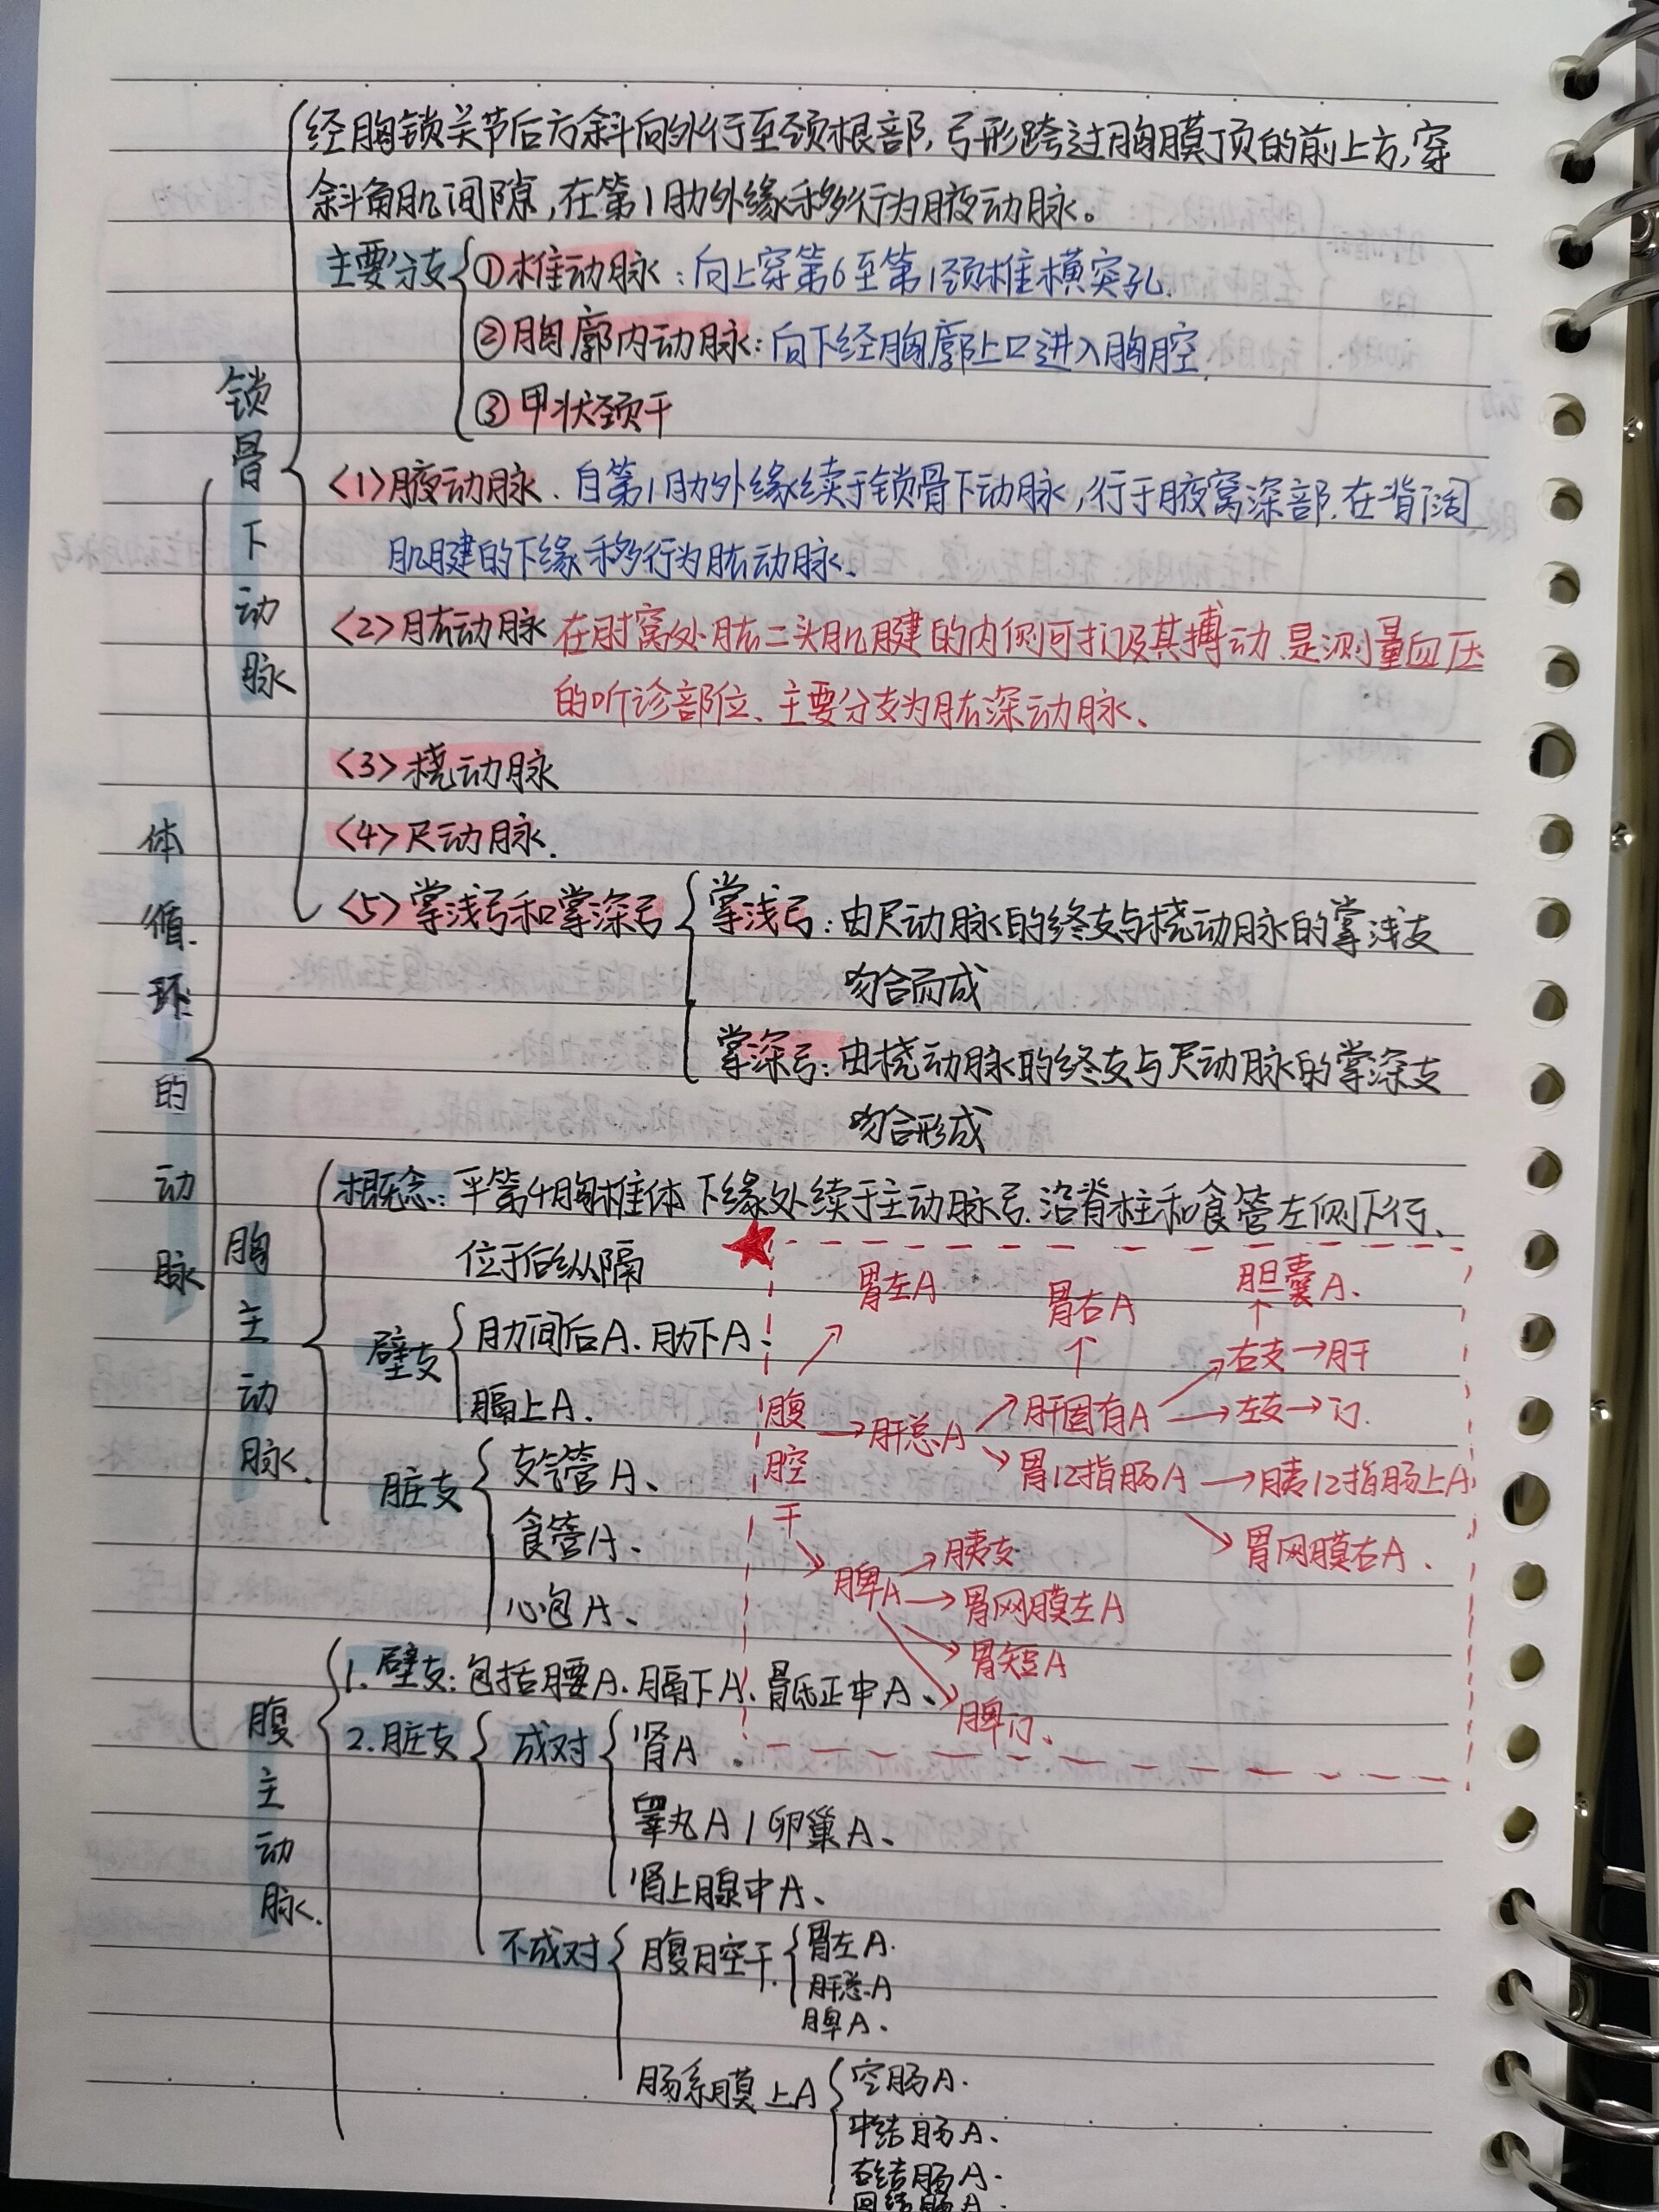 体循环的动脉
锁骨下动脉
经胸锁关节后方斜向外行至颈根部,弓形跨过胸膜顶的前上方,穿
斜角肌间隙,在第1肋外缘移行为腋动脉。
主要分支
①椎动脉:向上穿第6至第1颈椎横突孔.
②胸廓内动脉:向下经胸廓上口进入胸腔.
③甲状颈干
<1>腋动脉、自第1肋外缘续于锁骨下动脉,行于腋窝深部.在背阔
肌腱的下缘移行为肱动脉、
<2>肱动脉 在肘窝处肱二头肌腱的内侧可扪及其搏动、是测量血压
的听诊部位、主要分支为肱深动脉、
<3>桡动脉
<4>尺动脉.
<5>掌浅弓和掌深弓
掌浅弓:由尺动脉的终支与桡动脉的掌浅支
吻合而成
掌深弓:由桡动脉的终支与尺动脉的掌深支
吻合形成
胸主动脉.
概念:平第4胸椎体下缘处续于主动脉弓.沿脊柱和食管左侧下行、
位于后纵隔
壁支
肋间后A.肋下A.
膈上A.
脏支
支气管A、
食管A、
心包A、
腹腔干
↗胃左A
→肝总A
↗肝固有A
↑胃右A
↗右支→肝
↑胆囊A.
→左支→门.
↘胃12指肠A→胰12指肠上A
↘胃网膜右A.
↘脾A
↗胰支
→胃网膜左A
↘胃短A
↘脾门、
腹主动脉.
1.壁支:包括腰A.膈下A、骶正中A、
2.脏支
成对
肾A.
睾丸A/卵巢A、
肾上腺中A、
不成对
腹腔干.
胃左A.
肝总A
脾A.
肠系膜上A
空肠A.
中结肠A、
右结肠A.
回结肠A.